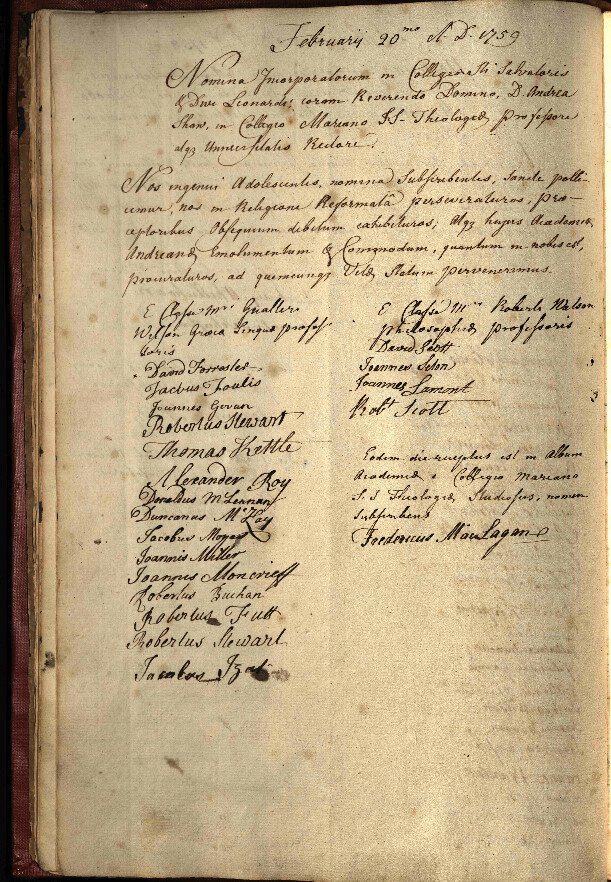 Februarij 20mo A. D. 1759
Nomina Incorporatorum in Collegio Sti Salvatoris
& Divi Leonardi; coram Reverendo Domino, D. Andrea
Shaw, in Collegio Mariano SS. Theologiæ Professore
atq; Universitatis Rectore.
Nos ingenui Adolescentes, nomina Subscribentes, Sancte polli-
cemur, nos in Religione Reformata perseveraturos, præ-
ceptoribus Obsequium debitum exhibituros; Atq; hujus Academiæ
Andreanæ Emolumentum & Commodum, quantum in nobis est,
procuraturos, ad quemcunq; Vitæ Statum pervenerimus.
E Classe Mri Gualteri
Wilson Græcæ Linguæ profess-
soris
David Forrester
Jacbus Foulis
Joannes Govan
Robertus Stewart
Thomas Kettle
Alexander Roy
Donaldus McLennan
Duncanus McKay
Jacobus
Joannis Miller
Joannis Moncrieff
Robertus Buchan
Robertus Tutt
Robertus Stewart
Jacobus Izat
E Classe Mri Roberti Watson
Philosophiæ Professoris
David Scott
Joannes Seton
Joannes Lamont
Robt Scott
Eodem die receptus est in Album
Academiæ e Collegio Mariano
S. S Theologiæ Studiosus, nomen
Subscribens
Fredericus MacLagan